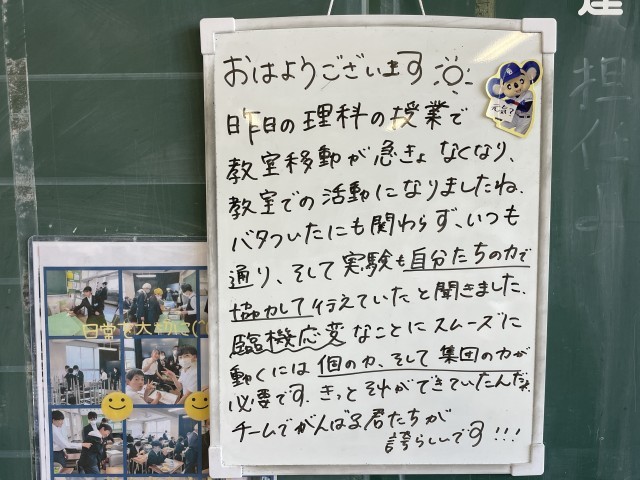 おはようございます
元気?
昨日の理科の授業で
教室移動が急きょなくなり、
教室での活動になりましたね.
バタついたにも関わらず、いつも
通り、そして実験も自分たちの力で
協力して行えていたと聞きました.
臨機応変なことにスムーズに
動くには個の力、そして集団の力が
必要です.きっとそれができていたんだね.
チームでがんばる君たちが
誇らしいです!!!
日常で大切に
担任